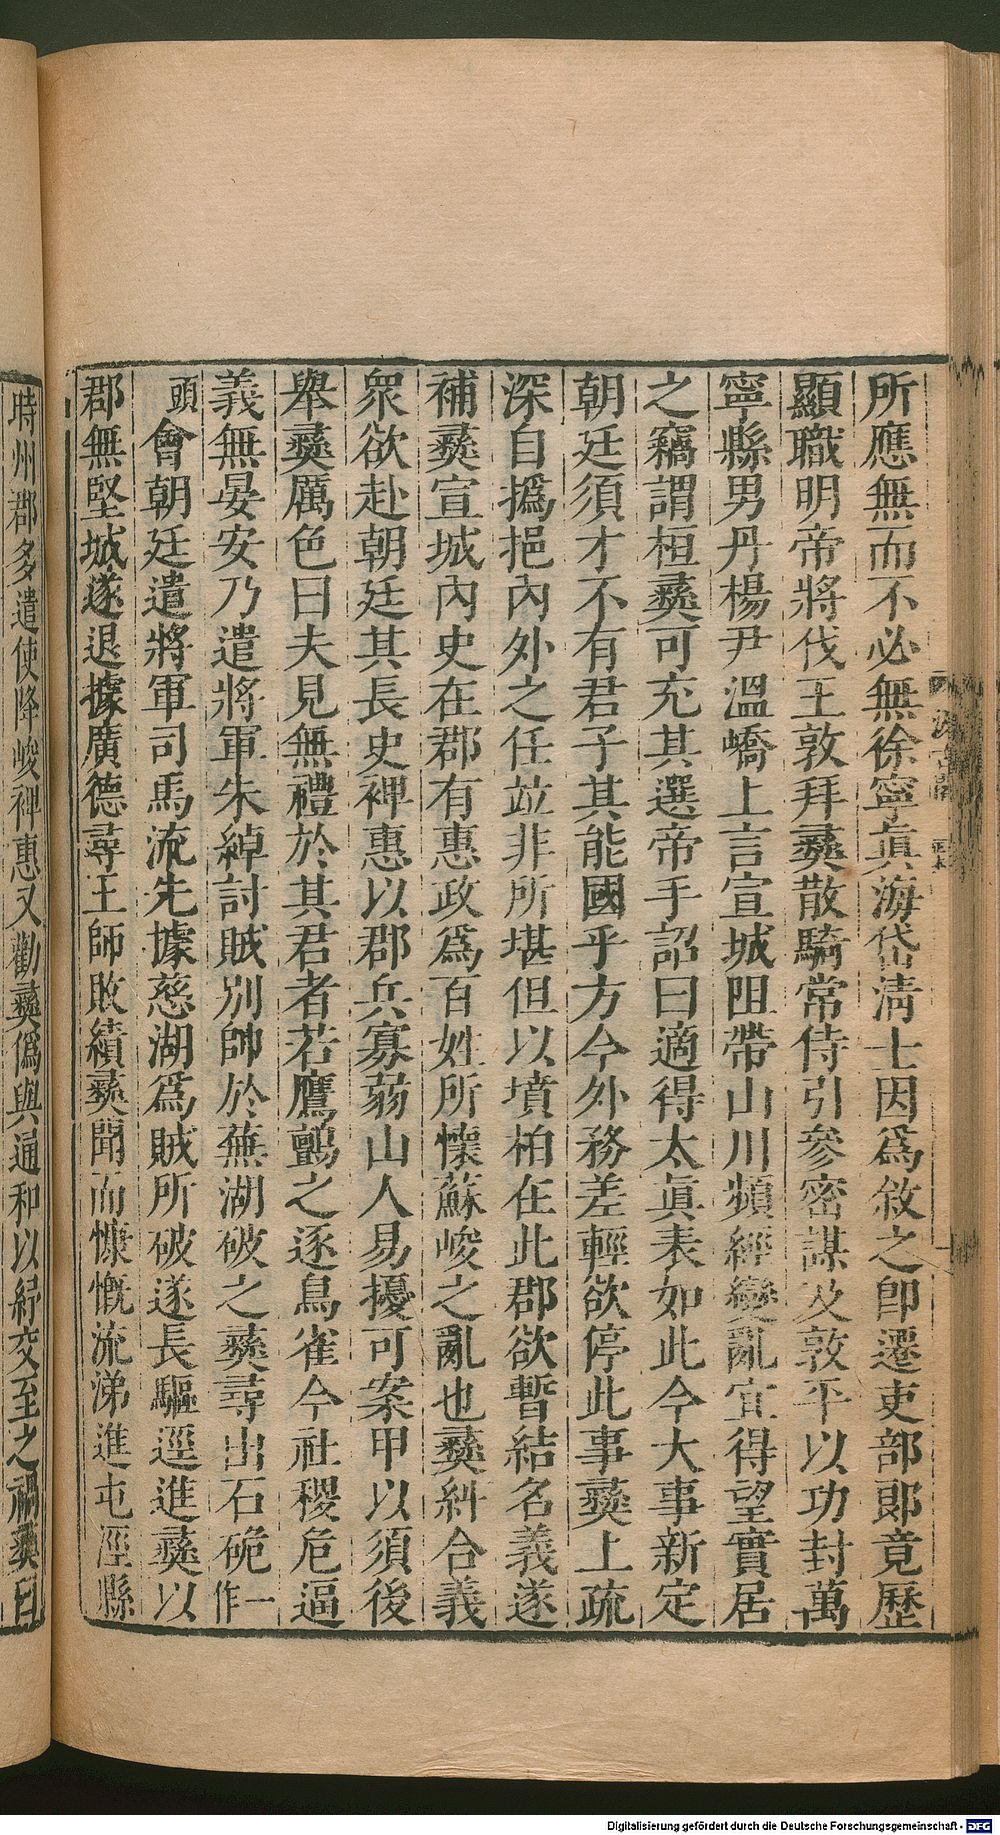 所應無而不必無徐寧眞海岱淸士因爲敘之卽遷吏部郞竟歷
顯職明帝將伐王敦拜彞散騎常侍引參密謀及敦平以功封萬
寧縣男丹楊尹溫嶠上言宣城阻帶山川頻經變亂宜得望實居
之竊謂桓彞可充其選帝手詔曰適得太眞表如此今大事新定
朝廷須才不有君子其能國乎方今外務差輕欲停此事彞上疏
深自撝挹內外之任竝非所堪但以墳柏在此郡欲暫結名義遂
補彞宣城內史在郡有惠政爲百姓所懷蘇峻之亂也彞糾合義
衆欲赴朝廷其長史裨惠以郡兵寡弱山人易擾可案甲以須後
舉彞厲色曰夫見無禮於其君者若鷹鸇之逐鳥雀今社稷危逼
義無晏安乃遣將軍朱綽討賊別帥於蕪湖破之彞尋出石硊一作
頭會朝廷遣將軍司馬流先據慈湖爲賊所破遂長驅逕進彞以
郡無堅城遂退據廣德尋王師敗績彞聞而慷慨流涕進屯涇縣
時州郡多遣使降峻裨惠又勸彞僞與通和以紓交至之禍彞曰
Digitalisierung gefördert durch die Deutsche Forschungsgemeinschaft - DFG